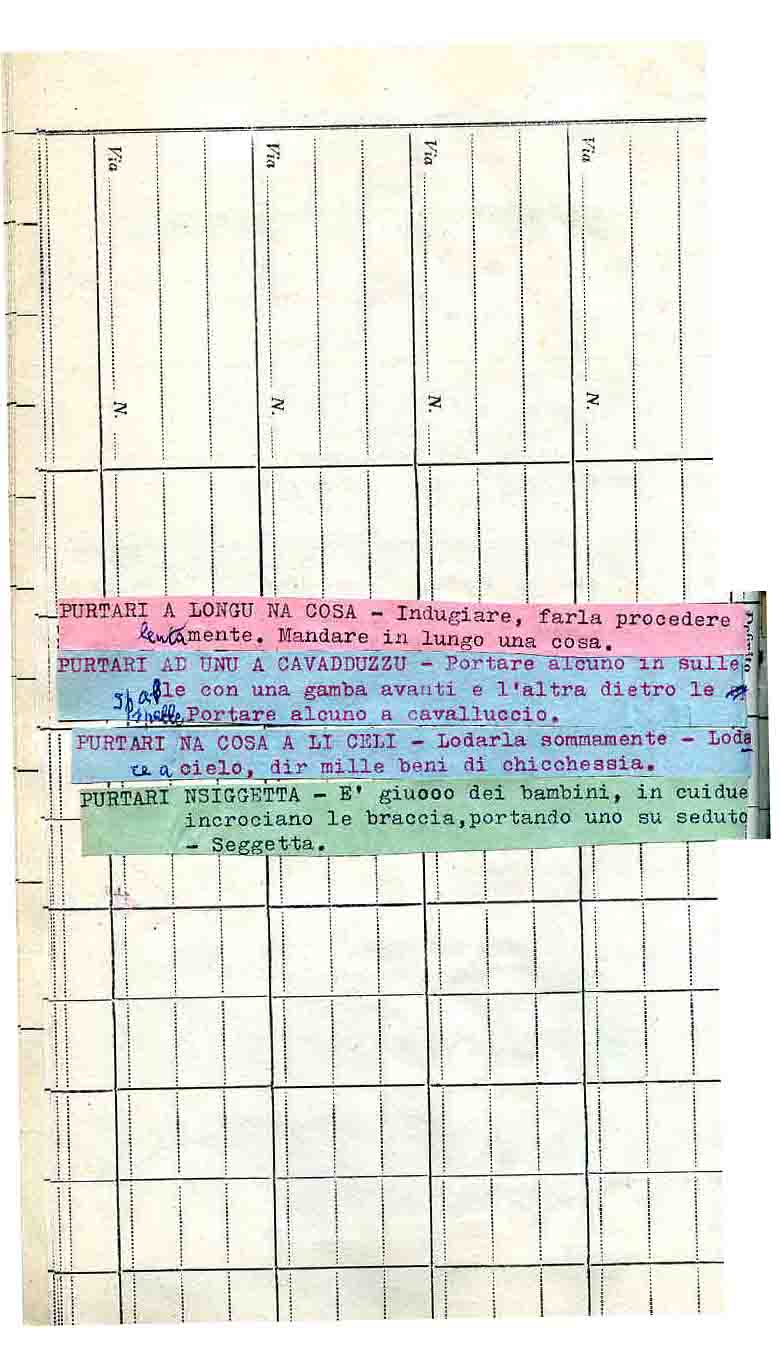 Via Via Via Via
N. N. N. N.
PURTARI A LONGU NA COSA - Indugiare, farla procedere
lentamente. Mandare in lungo una cosa.
PURTARI AD UNU A CAVADDUZZU - Portare alcuno in sulle
spalle con una gamba avanti e l'altra dietro le
spalle Portare alcuno a cavalluccio.
PURTARI NA COSA A LI CELI - Lodarla sommamente - Loda
re a cielo, dir mille beni di chicchessia.
PURTARI NSIGGETTA - E' giuooo dei bambini, in cuidue
incrociano le braccia,portando uno su seduto
- Seggetta.